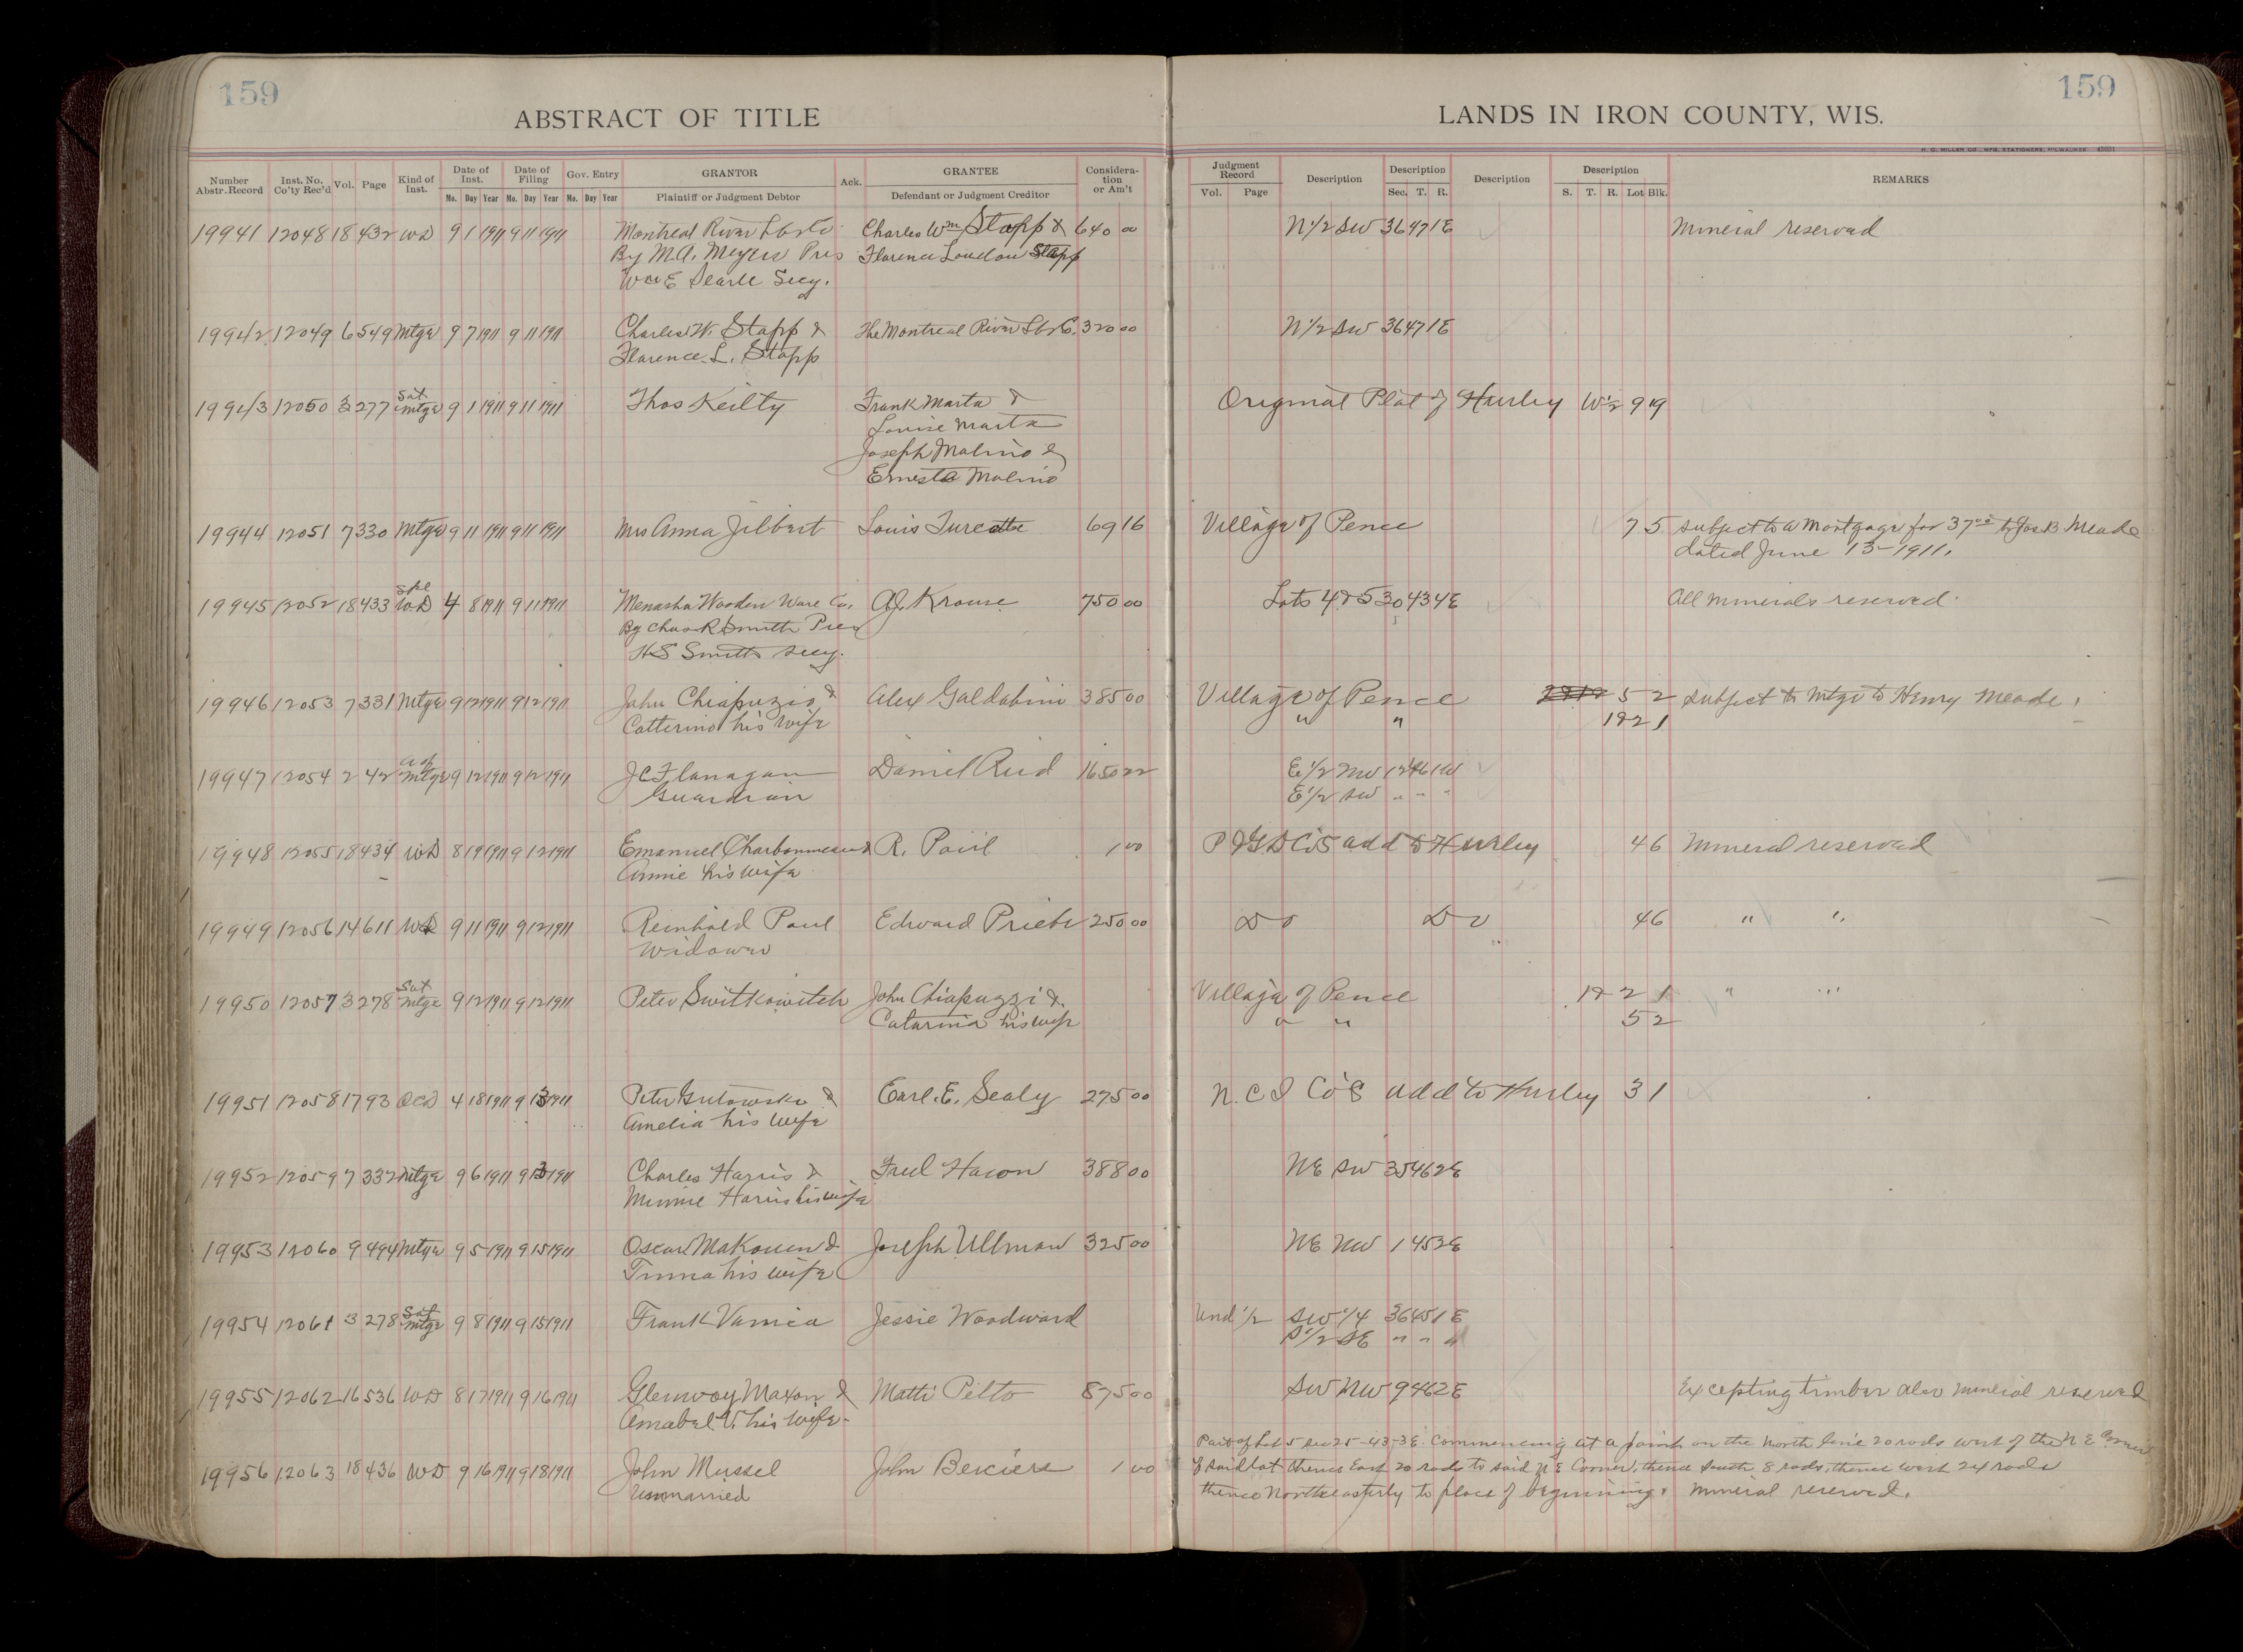 159
159
ABSTRACT OF TITLE
LANDS IN IRON COUNTY, WIS.
H. G. MILLER CO., MFG. STATIONERS, MILWAUKEE
Number Abstr. Record | Inst. No. Co'ty Rec'd | Vol. | Page | Kind of Inst. | Date of Inst. Mo. Day Year | Date of Filing Mo. Day Year | Gov. Entry Mo. Day Year | GRANTOR Plaintiff or Judgment Debtor | Ack. | GRANTEE Defendant or Judgment Creditor | Considera-tion or Am't | Judgment Record Vol. Page | Description | Description Sec. T. R. | Description | Description S. T. R. Lot Blk. | REMARKS
19941 12048 18 432 WD 9 1 1911 9 11 1911 Montreal River Lbr Co. Charles Wm Stapp & 640 00 N 1/2 SW 36 47 1E Mineral reserved
By M.A. Meyers Pres Florence Loudou Stapp
Wm E Searle Secy.
19942 12049 6 549 Mtge 9 7 1911 9 11 1911 Charles W. Stapp & The Montreal River Lbr C. 320 00 N 1/2 SW 36 47 1E
Florence L. Stapp
19943 12050 3 277 Sat Mtge 9 1 1911 9 11 1911 Thos Keilty Frank Marta & Original Plat of Hurley W 1/2 9 19
Louise Marta
Joseph Malino &
Ernesta Malino
19944 12051 7 330 Mtge 9 11 1911 9 11 1911 Mrs Anna Jilbert Louis Turcotte 69 16 Village of Pence 7 5 subject to a Mortgage for 37 00 to Jos B Meade
dated June 13-1911.
19945 12052 18 433 Spl WD 4 8 1911 9 11 1911 Menasha Wooden Ware Co. A.J. Krouse 750 00 Lots 4 & 5 30 43 4E All minerals reserved.
By Chas R Smith Pres
H S Smith secy.
19946 12053 7 331 Mtge 9 12 1911 9 12 1911 John Chiapuzio & Alex Galdabini 385 00 Village of Pence 5 2 subject to Mtge to Henry Meade.
Catterino his wife " " 1 & 2 1
19947 12054 2 42 a of Mtge 9 12 1911 9 12 1911 J C Flanagan Daniel Reid 1650 22 E 1/2 NW 12 46 1W
Guardian E 1/2 SW " " "
19948 12055 18 434 WD 8 19 1911 9 12 1911 Emanuel Charbonneau & R. Paul 1 00 P & G D Co's add to Hurley 4 6 Mineral reserved
Annie his wife
19949 12056 14 611 WD 9 11 1911 9 12 1911 Reinhold Paul Edward Priebe 250 00 Do Do 4 6 " "
Widower
19950 12057 3 278 Sat Mtge 9 12 1911 9 12 1911 Peter Switkowitch John Chiapuzzi & Village of Pence 1 & 2 1 " "
Catarina his wife " " 5 2
19951 12058 17 93 QCD 4 18 1911 9 13 1911 Peter Gutowski & Earl. E. Sealy 275 00 N. C I Co's add to Hurley 3 1
Amelia his wife
19952 12059 7 332 Mtge 9 6 1911 9 13 1911 Charles Harris & Fred Hacon 388 00 NE SW 35 46 2E
Minnie Harris his wife
19953 12060 9 494 Mtge 9 5 1911 9 15 1911 Oscar Makonen & Joseph Ullman 325 00 NE NW 1 45 2E
his wife
19954 12061 3 278 Sat Mtge 9 8 1911 9 15 1911 Frank Jessie Woodward Und 1/2 SW 1/4 36 45 1E
S 1/2 SE " " "
19955 12062 16 536 WD 8 17 1911 9 16 1911 Glenwoy Maxon & Matti Pelto 875 00 SW NW 9 46 2E Excepting timber also mineral reserved
Amabel V. his wife.
19956 12063 18 436 WD 9 16 1911 9 18 1911 John Mussel John 1 00 Part of Lot 5 Sec 25-43-3E. Commencing at a point on the North line 20 rods west of the N E Corner
Unmarried of said Lot thence East 20 rods to said N E Corner, thence South 8 rods, thence West 24 rods
thence Northeasterly to place of beginning. Mineral reserved.